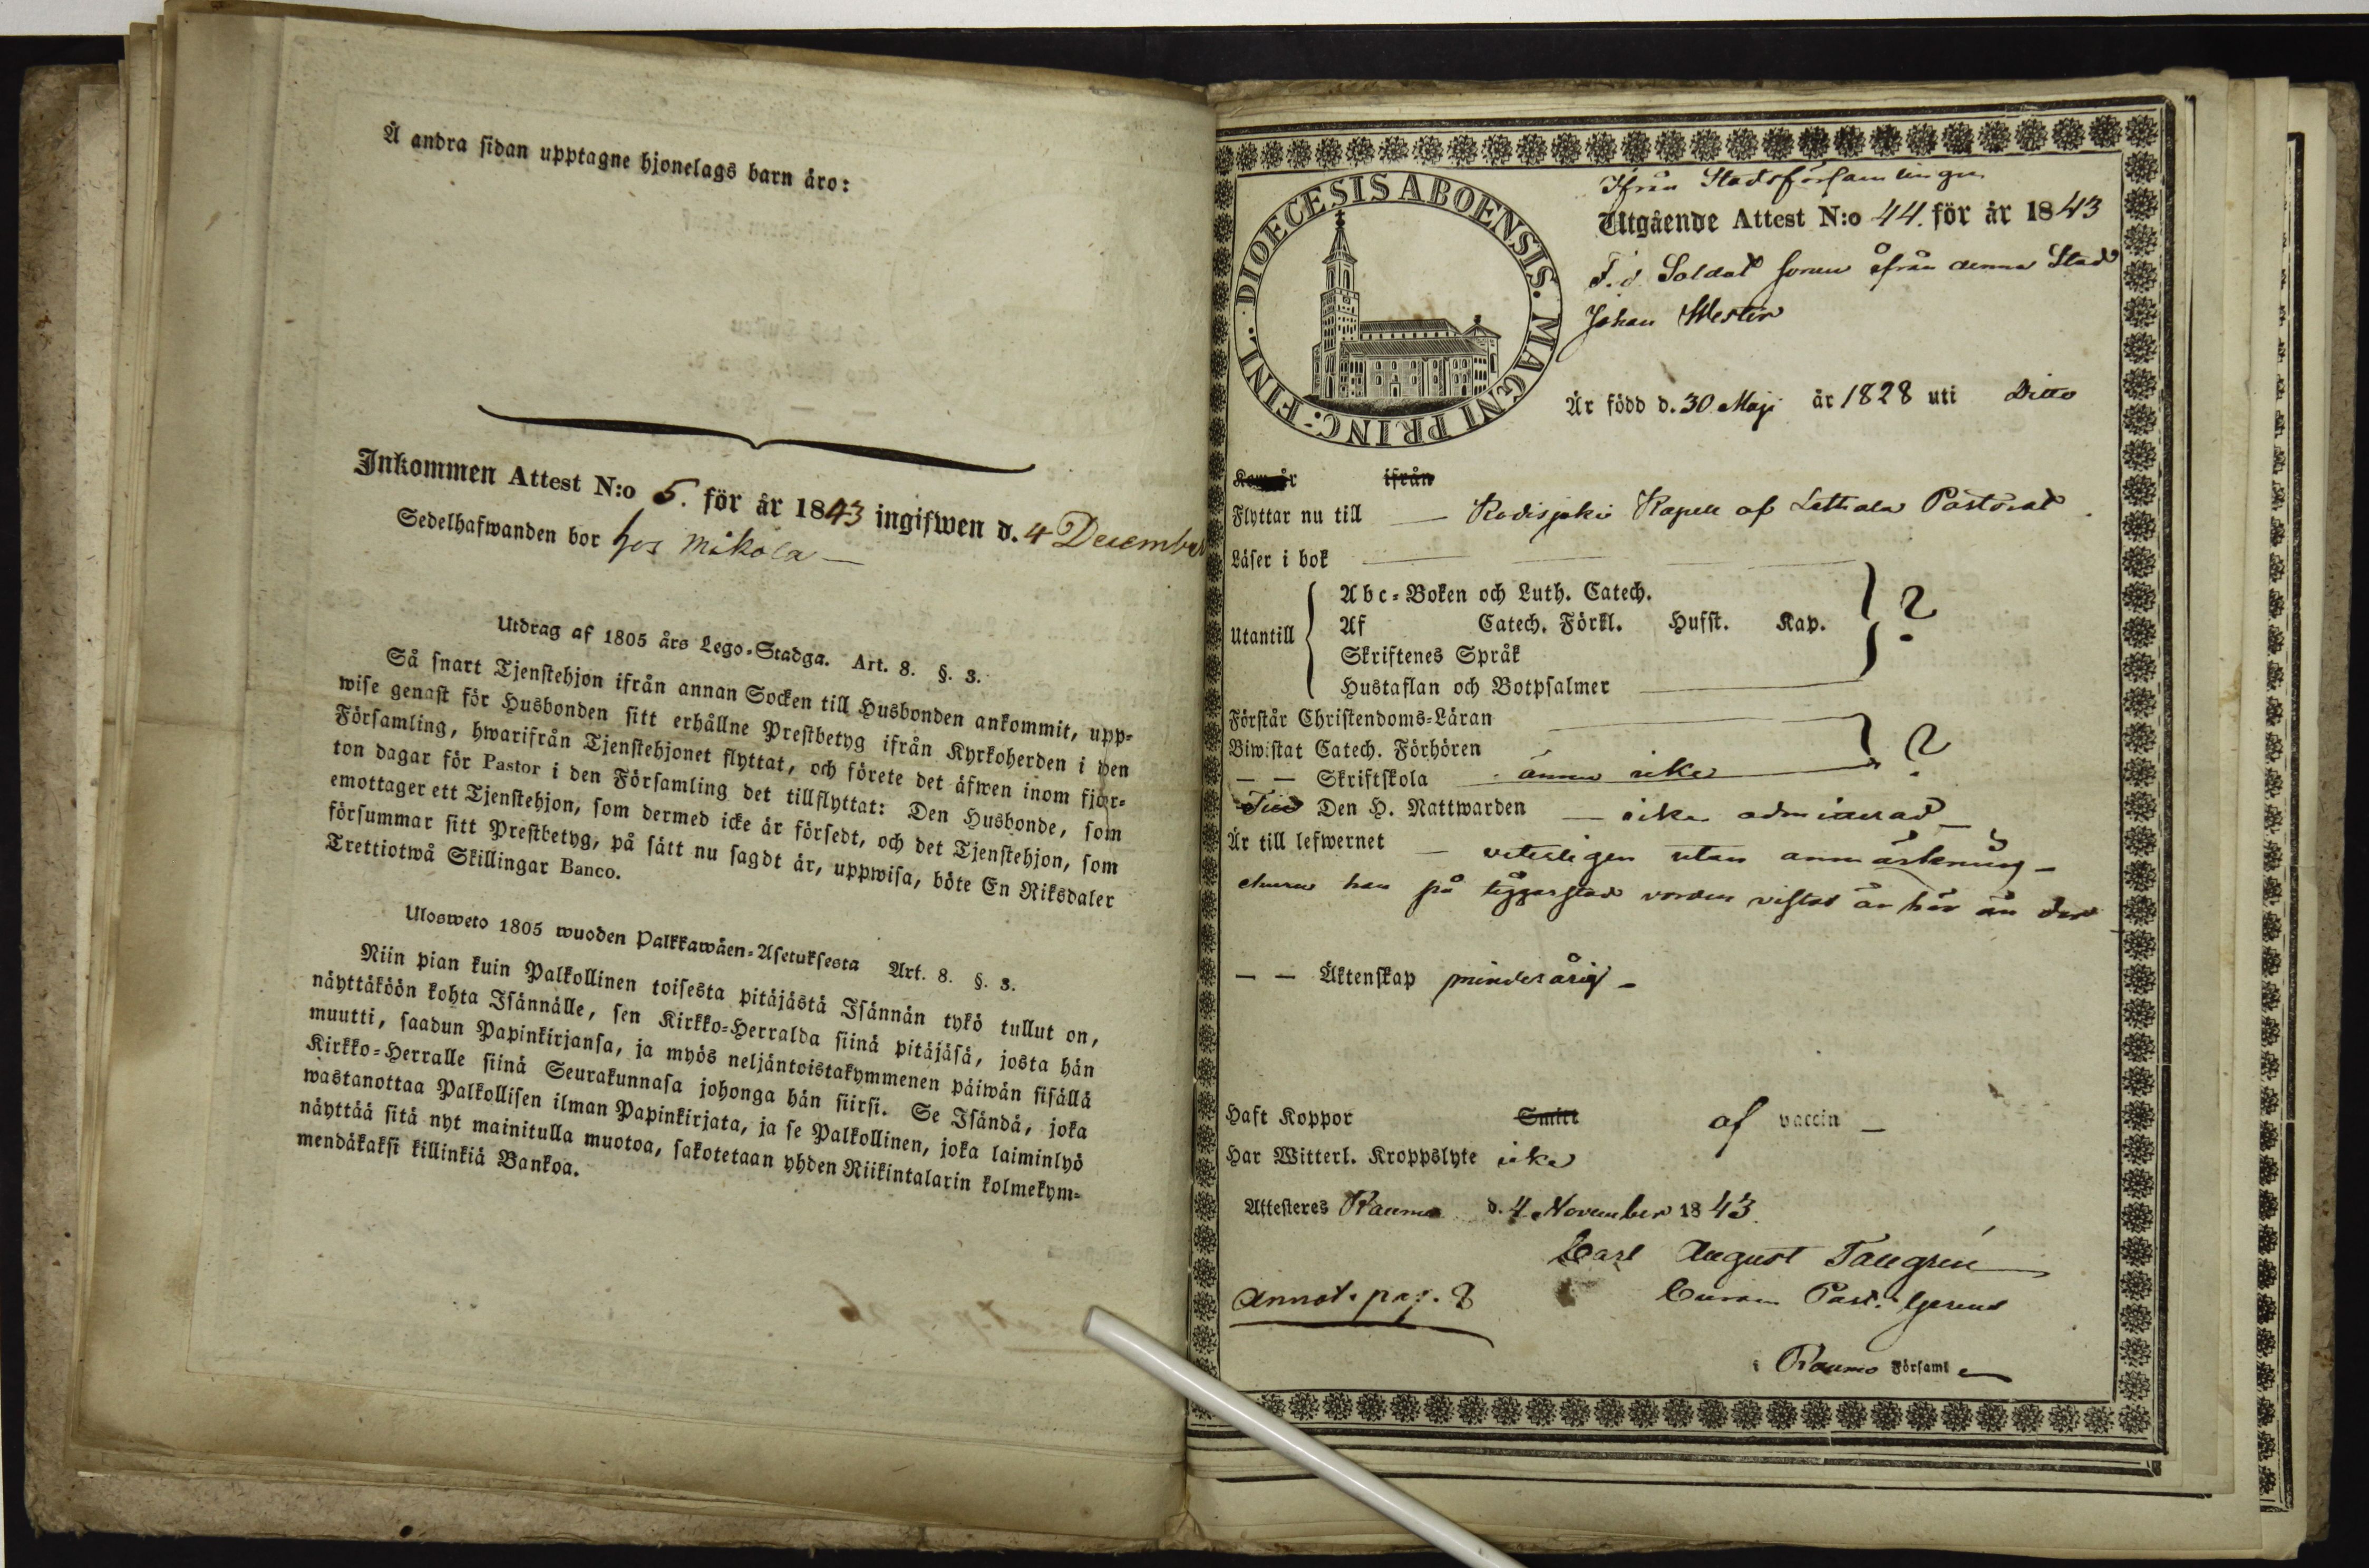 Å andra sidan upptagne hjonelags barn äro:
Inkommen Attest N:o 5. för år 1843 ingifwen d. 4 December
Sedelhafwanden bor hos Mikola —
Utdrag af 1805 års Lego-Stadga. Art. 8. §. 3.
Så snart Tjenstehjon ifrån annan Socken till Husbonden ankommit, upp-
wise genast för Husbonden sitt erhållne Prestbetyg ifrån Kyrkoherden i den
Församling, hwarifrån Tjenstehjonet flyttat, och förete det äfwen inom fjor-
ton dagar för Pastor i den Församling det tillflyttat: Den Husbonde, som
emottager ett Tjenstehjon, som dermed icke är försedt, och det Tjenstehjon, som
försummar sitt Prestbetyg, på sätt nu sagdt är, uppwisa, böte En Riksdaler
Trettiotwå Skillingar Banco.
Ulosweto 1805 wuoden Palkkawäen-Asetuksesta Art. 8. §. 3.
Niin pian kuin Palkollinen toisesta pitäjästä Isännän tykö tullut on,
näyttäköön kohta Isännälle, sen Kirkko-Herralda siinä pitäjäsä, josta hän
muutti, saadun Papinkirjansa, ja myös neljäntoistakymmenen päiwän sisällä
Kirkko-Herralle siinä Seurakunnasa johonga hän siirsi. Se Isändä, joka
wastanottaa Palkollisen ilman Papinkirjata, ja se Palkollinen, joka laiminlyö
näyttää sitä nyt mainitulla muotoa, sakotetaan yhden Riikintalarin kolmekym-
mendäkaksi killinkiä Bankoa.
DIOECESIS ABOENSIS. MAGNI PRINC: FINL.
Ifrån Stadsförsamlingen
Utgående Attest N:o 44. för år 1843
F. d. Soldat sonen ifrån denna Stad
Johan Wester
Är född d. 30 Maji år 1828 uti Ditto
Kom år ifrån
Flyttar nu till — Kodisjoki Kapell af Pastorat.
Läser i bok
Utantill
Abc-Boken och Luth. Catech.
Af Catech. Förkl. Husst. Kap. ?
Skriftenes Språk
Hustaflan och Botpsalmer
Förstår Christendoms-Läran
Biwistat Catech. Förhören ?
— — Skriftskola ännu icke
Den H. Nattwarden — icke admitterad —
Är till lefwernet — veterligen utan anmärkning —
han på vistas än här än der
— — Äktenskap minderårig —
Haft Koppor Smitt af vaccin —
Har Witterl. Kroppslyte icke
Attesteres Raumo d. 4 November 1843.
Carl August Tallgren
Curam Past. Gerens
Annot. pag. 8
i Raumo Församl